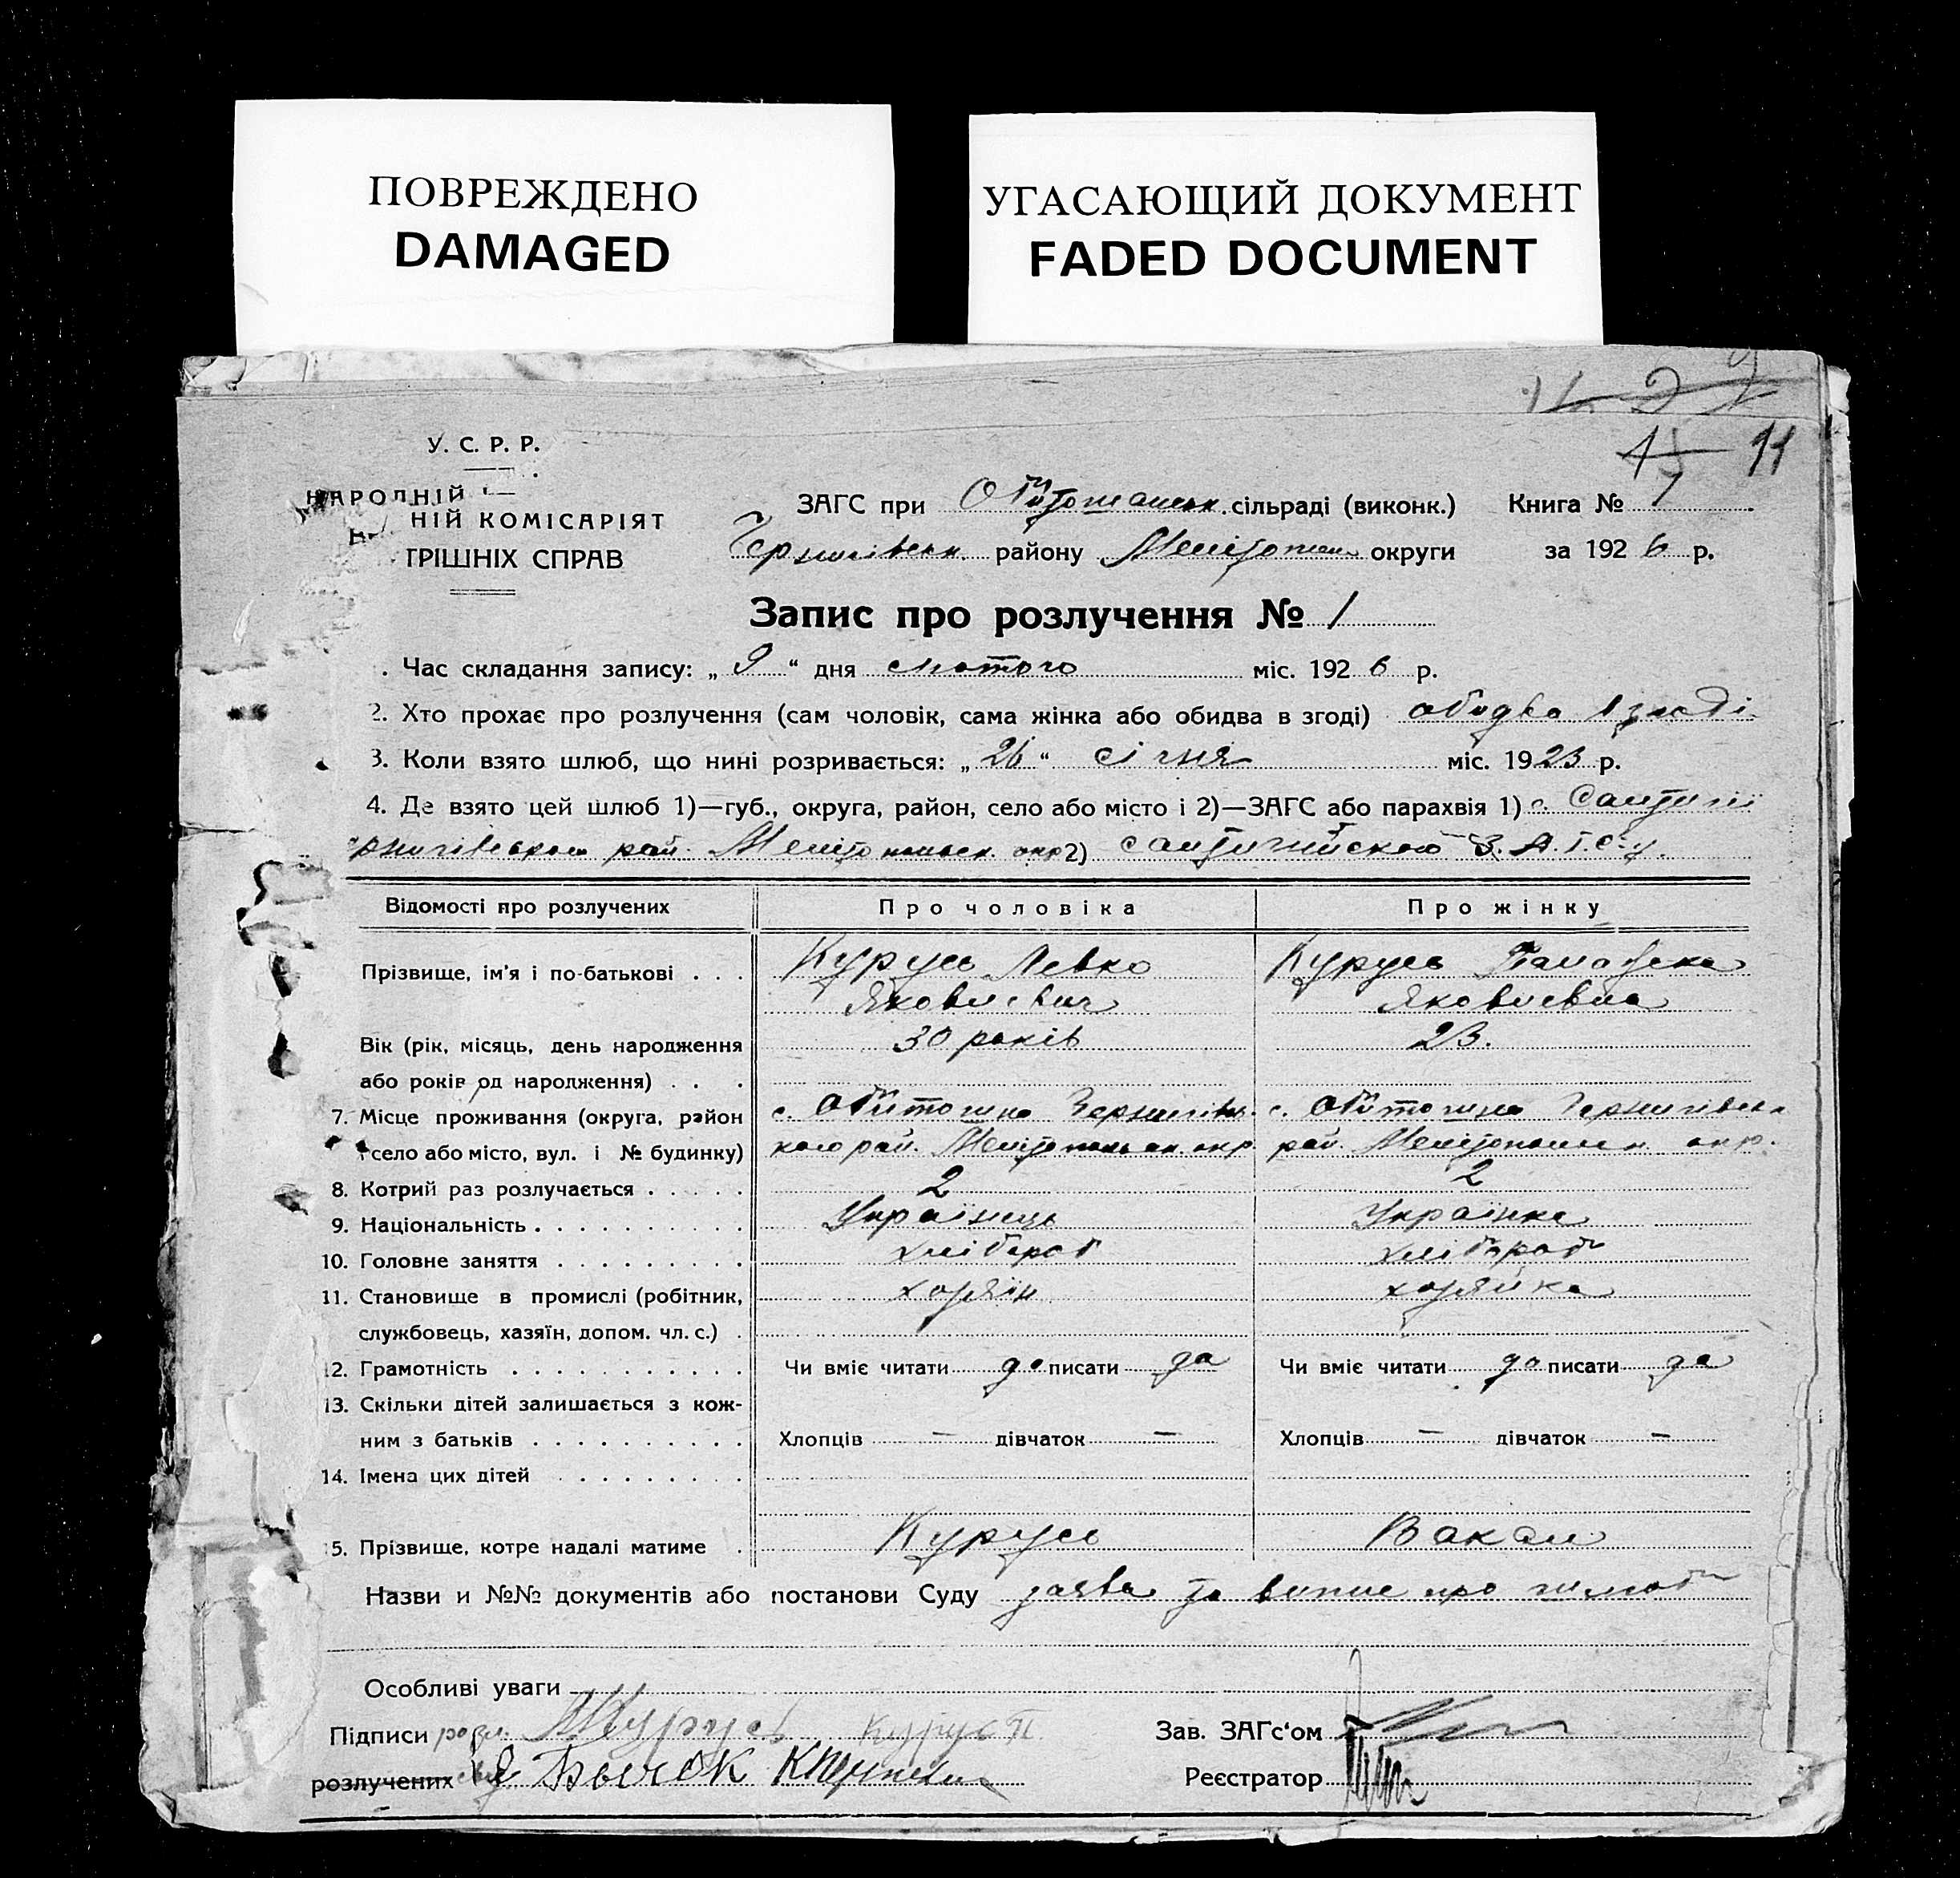 ПОВРЕЖДЕНО
DAMAGED
УГАСАЮЩИЙ ДОКУМЕНТ
FADED DOCUMENT
11
У. С. Р. Р.
НАРОДНІЙ
НІЙ КОМІСАРІЯТ
ТРІШНІХ СПРАВ
ЗАГС при сільраді (виконк.) Книга № 1
району округи за 1926 р.
Запис про розлучення № 1
. Час складання запису: „ 9 “ дня лютого міс. 1926 р.
2. Хто прохає про розлучення (сам чоловік, сама жінка або обидва в згоді) обидва в згоді
3. Коли взято шлюб, що нині розривається: „ 26 “ січня міс. 1923 р.
4. Де взято цей шлюб 1)—губ., округа, район, село або місто і 2)—ЗАГС або парахвія 1) с.
рай. 2) З.А.Г.С-у.
Відомості про розлучених Про чоловіка Про жінку
Прізвище, ім'я і по-батькові . . . Курусь Левко Курусь
Яковлевич Яковлевна
Вік (рік, місяць, день народження 30 років 23.
або років од народження) . . .
7. Місце проживання (округа, район с. Обіточна с. Обіточна
село або місто, вул. і № будинку) рай. рай. окр.
8. Котрий раз розлучається . . . . . 2 2
9. Національність . . . . . . . . . . Українець Українка
10. Головне заняття . . . . . . . . . хлібороб хлібороб
11. Становище в промислі (робітник, хозяїн хозяйка
службовець, хазяїн, допом. чл. с.) .
12. Грамотність . . . . . . . . . . . Чи вміє читати да писати да Чи вміє читати да писати да
13. Скільки дітей залишається з кож-
ним з батьків . . . . . . . . . . Хлопців — дівчаток — Хлопців — дівчаток —
14. Імена цих дітей . . . . . . . . .
5. Прізвище, котре надалі матиме . Курусь Вакал
Назви и №№ документів або постанови Суду заява та випис про шлюб
Особливі уваги
Підписи розл. Курусь Курусь П Зав. ЗАГс‘ом
розлучених Реєстратор